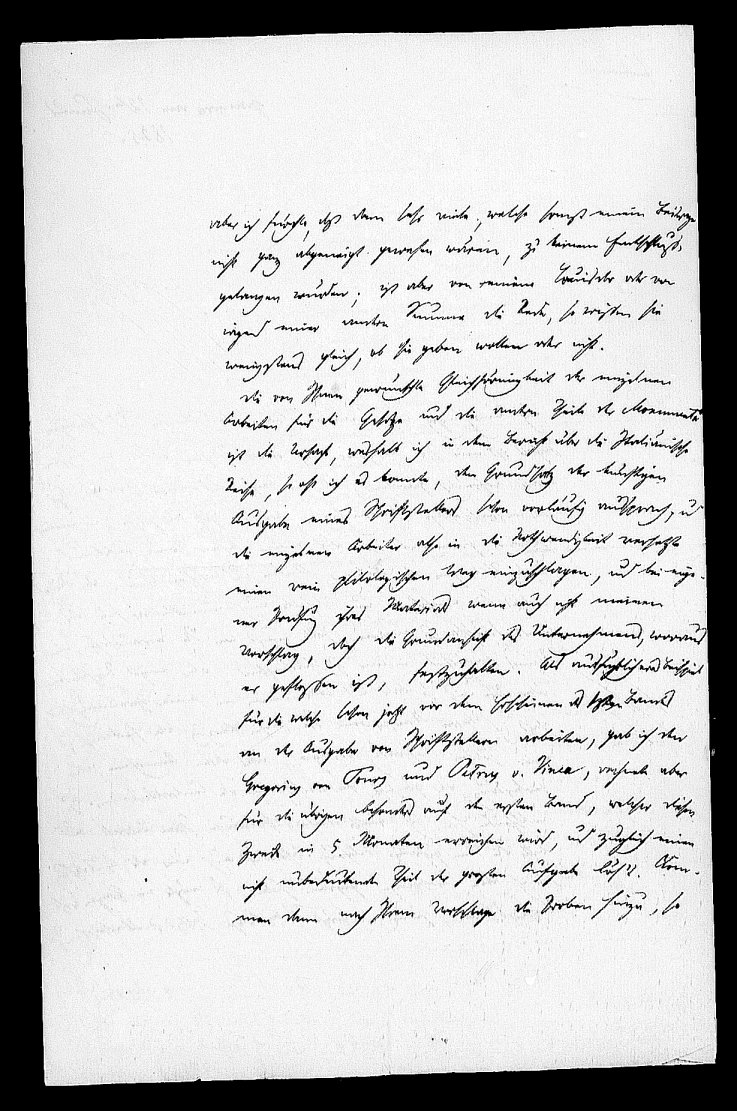 aber ich fürchte, daß dann sehr viele, welche sonst einem Beitrage
nicht ganz abgeneigt gewesen wären, zu keinem Entschlusse
gelangen würden; ist aber von einem Louisdor oder von
irgend einer andern Summe die Rede, so wissen sie
wenigstens gleich, ob sie geben wollen oder nicht.
Die von Ihnen gewünschte Gleichförmigkeit der einzelnen
Arbeiten für die Gesetze und die andern Theile der Monumenta
ist die Ursache, weshalb ich in dem Bericht über die Italiänische
Reise, so oft ich es konnte, den Grundsatz der künftigen
Ausgabe eines Schriftstellers schon vorläufig aussprach, und
die einzelnen Arbeiter also in die Nothwendigkeit versetzte
einen rein philologischen Weg einzuschlagen, und bei eige-
ner Prüfung ihres Materials wenn auch nicht meinen
Vorschlag, doch die Grundansicht des Unternehmens, woraus
er geflossen ist, festzuhalten. Als ausführlicheres Beispiel
für die welche schon jetzt vor dem Erscheinen des Bandes
an der Ausgabe von Schriftstellern arbeiten, gab ich den
Gregorius von Tours und Petrus v. Vinea, rechnete aber
für die übrigen besonders auf den ersten Band, welcher diesen
Zweck in 5 Monaten erreichen wird, und zugleich einen
nicht unbedeutenden Theil der großen Aufgabe löst. Kom-
men dann nach Ihrem Vorschlage die Proben hinzu, so